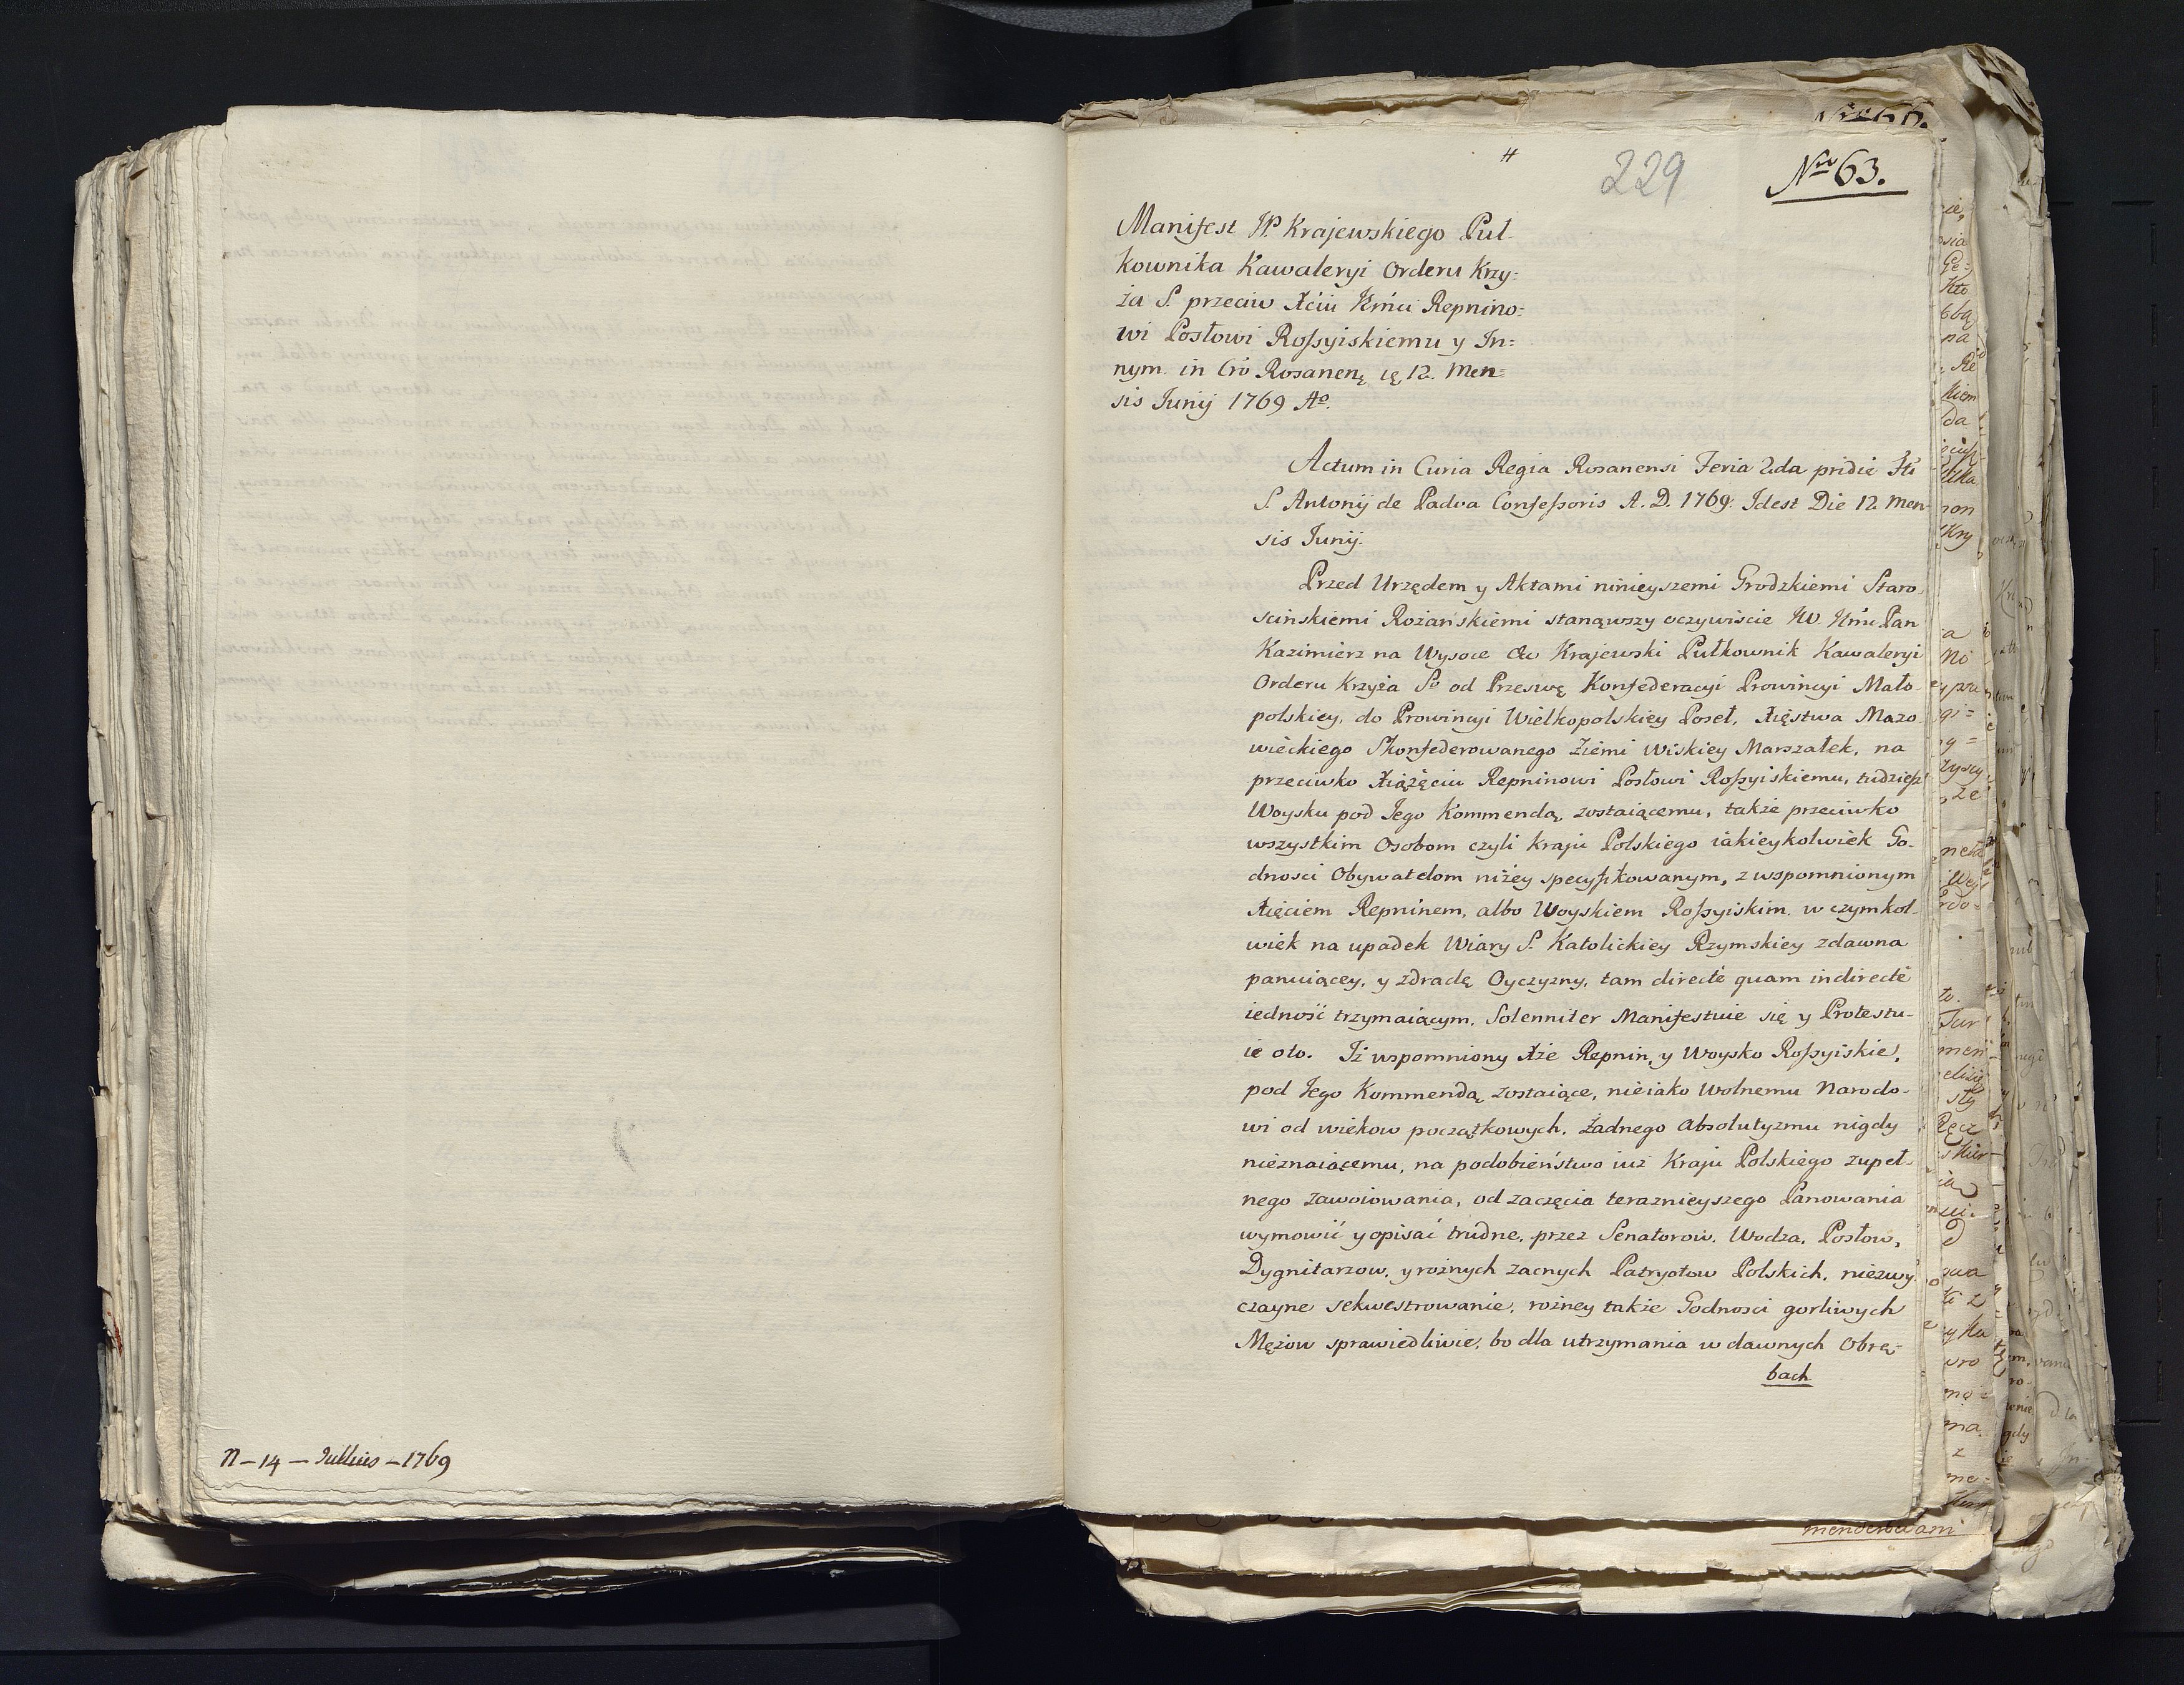 n – 14 – Iullius – 1769
229
Nro 63.
Manifest JP. Krajewskiego Puł
kownika Kawaleryi Orderu Krzy:
ża S. przeciw Xciu Jmci Repnino:
wi Posłowi Roſsyiskiemu y In:
nym in Cro Rosanen 12. Men:
sis Junij 1769 Ao.
Actum in Curia Regia Rosanensi Feria 2da pridie Fti
S. Antonij de Padva Confeſsoris A. D. 1769. Idest Die 12. Men
sis Junij.
Przed Urzędem y Aktami ninieyszemi Grodzkiemi Staro
scinskiemi Rożańskiemi stanąwszy oczywiscie JW. Jmć Pan
Kazimierz na Wysoce &c Krajewski Pułkownik Kawaleryi
Orderu Krzyża So od Przeswę Konfederacyi Prowincyi Mało
polskiey, do Prowincyi Wielkopolskiey Poseł, Xięstwa Mazo
wieckiego Skonfederowanego Ziemi Wiskiey Marszałek, na
przeciwko Xiążęciu Repninowi Posłowi Roſsyiskiemu, tudziesz
Woysku pod Jego Kommendą zostaiącemu, także przeciwko
wszystkim Osobom czyli Kraju Polskiego iakieykolwiek Go-
dnosci Obywatelom niżey specyfikowanym, z wspomnionym
Xięciem Repninem, albo Woyskiem Roſsyiskim, w czymkol-
wiek na upadek Wiary S. Katolickiey Rzymskiey zdawna
panuiącey, y zdradę Oyczyzny, tam directè quam indirectè
iedność trzymaiącym, Solenniter Manifestuie się y Protestu-
ie oto. Iż wspomniony Xże Repnin, y Woysko Roſsyiskie,
pod Jego Kommendą zostaiące, nieiako Wolnemu Narodo-
wi od wiekow początkowych, żadnego Absolutyzmu nigdy
nieznaiącemu, na podobieństwo iuż Kraju Polskiego zupeł-
nego zawoiowania, od zaczęcia teraznieyszego Panowania
wymowić y opisać trudne, przez Senatorow, Wodza, Posłow,
Dygnitarzow, y rożnych zacnych Patryotow Polskich, niezwy
czayne sekwestrowanie, rożney także Godnosci gorliwych
Mężow sprawiedliwie, bo dla utrzymania w dawnych Obrę-
bach